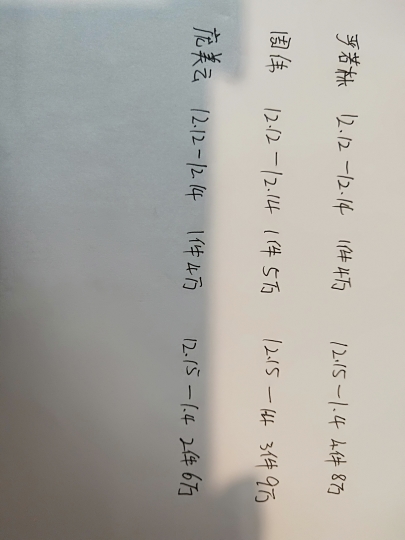 罗若林 12.12—12.14 1件4万 12.15—1.4 4件8万
周伟 12.12—12.14 1件5万 12.15—1.4 3件9万
庞美云 12.12—12.14 1件4万 12.15—1.4 2件6万